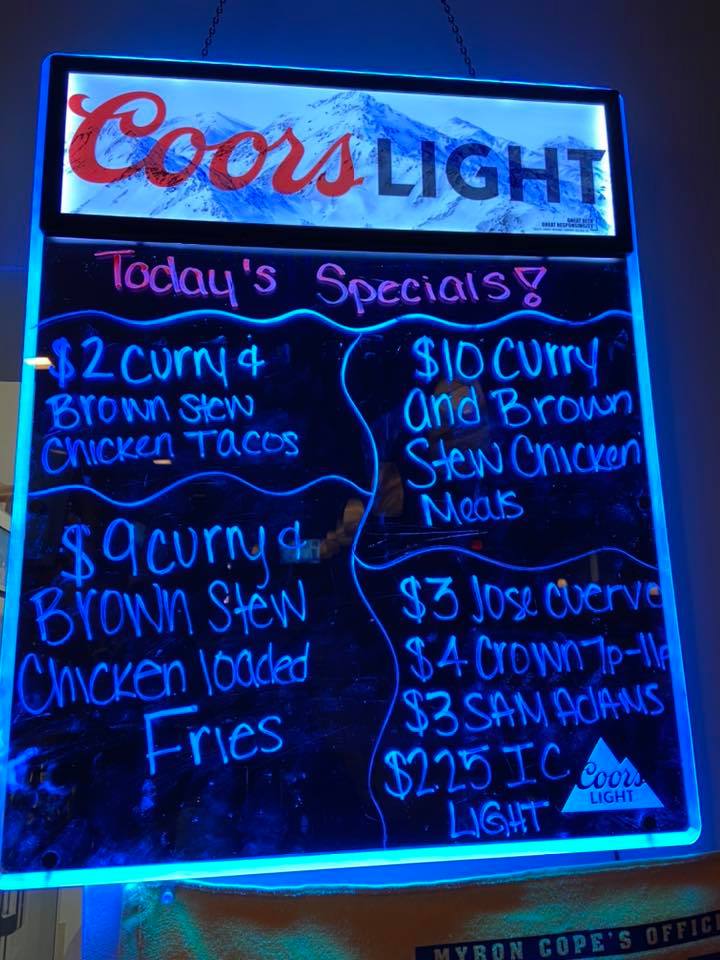 Coors LIGHT
Today's Specials!
$2 Curry &
Brown Stew
Chicken Tacos
$10 Curry
and Brown
Stew Chicken
Meals
$9 Curry &
Brown Stew
Chicken loaded
Fries
$3 Jose Cuervo
$4 Crown 7p-11p
$3 SAM ADAMS
$2.25 IC
LIGHT
Coors
LIGHT
MYRON COPE'S OFFIC